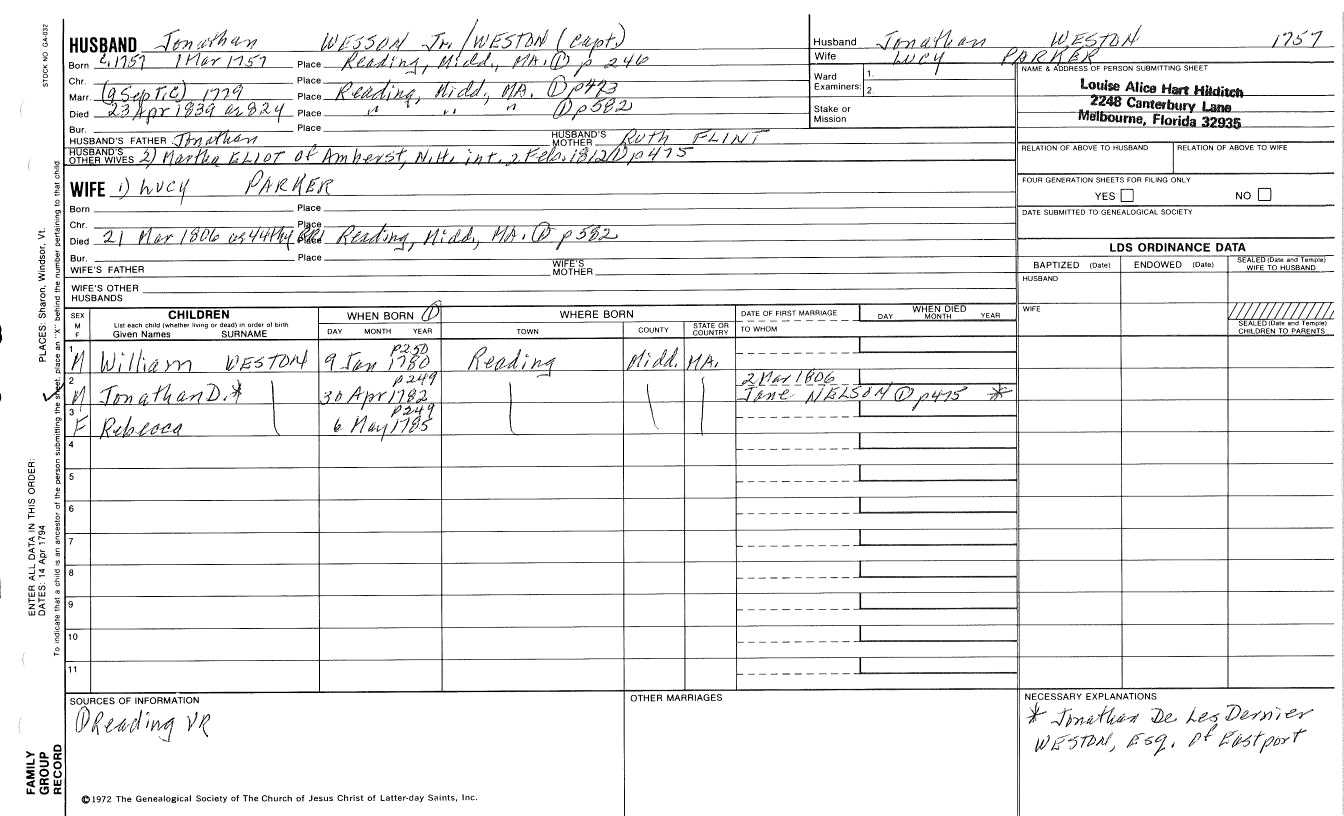 STOCK NO. GA-032
HUSBAND Jonathan WESSON Jr./WESTON (Capt.)
Born c.1757 1 Mar 1757 Place Reading, Midd., MA. ① p 246
Chr. Place
Marr. (9 Sept. C) 1779 Place Reading, Midd., MA. ① p473
Died 23 Apr 1839 Place " " " ① p582
Bur. Place
HUSBAND'S FATHER Jonathan HUSBAND'S MOTHER Ruth FLINT
HUSBAND'S OTHER WIVES 2) Martha ELIOT of Amherst, N.H. int. 2 Feb. 1812 ① p475
WIFE 1) Lucy PARKER
Born Place
Chr. Place
Died 21 Mar 1806 Place Reading, Midd., MA. ① p582
Bur. Place
WIFE'S FATHER WIFE'S MOTHER
WIFE'S OTHER HUSBANDS
Husband Jonathan WESTON 1757
Wife Lucy PARKER
Ward 1.
Examiners: 2.
Stake or Mission
NAME & ADDRESS OF PERSON SUBMITTING SHEET
Louise Alice Hart Hilditch
2248 Canterbury Lane
Melbourne, Florida 32935
RELATION OF ABOVE TO HUSBAND RELATION OF ABOVE TO WIFE
FOUR GENERATION SHEETS FOR FILING ONLY
YES NO
DATE SUBMITTED TO GENEALOGICAL SOCIETY
LDS ORDINANCE DATA
BAPTIZED (Date) ENDOWED (Date) SEALED (Date and Temple) WIFE TO HUSBAND
HUSBAND
WIFE
SEALED (Date and Temple) CHILDREN TO PARENTS
SEX M F CHILDREN WHEN BORN ① WHERE BORN DATE OF FIRST MARRIAGE WHEN DIED
List each child (whether living or dead) in order of birth
Given Names SURNAME DAY MONTH YEAR TOWN COUNTY STATE OR COUNTRY TO WHOM DAY MONTH YEAR
p250
1 M William WESTON 9 Jan 1780 Reading Midd. MA.
p249 2 Mar 1806
2 M Jonathan D.* 30 Apr 1782 Jane NELSON ① p475 *
p249
3 F Rebecca 6 May 1785
4
5
6
7
8
9
10
11
SOURCES OF INFORMATION
① Reading VR
OTHER MARRIAGES
NECESSARY EXPLANATIONS
* Jonathan De Les Dernier
WESTON, Esq. of Eastport
©1972 The Genealogical Society of The Church of Jesus Christ of Latter-day Saints, Inc.
FAMILY GROUP RECORD
ENTER ALL DATA IN THIS ORDER:
DATES: 14 Apr 1794 PLACES: Sharon, Windsor, Vt.
To indicate that a child is an ancestor of the person submitting the sheet, place an "X" behind the number pertaining to that child.